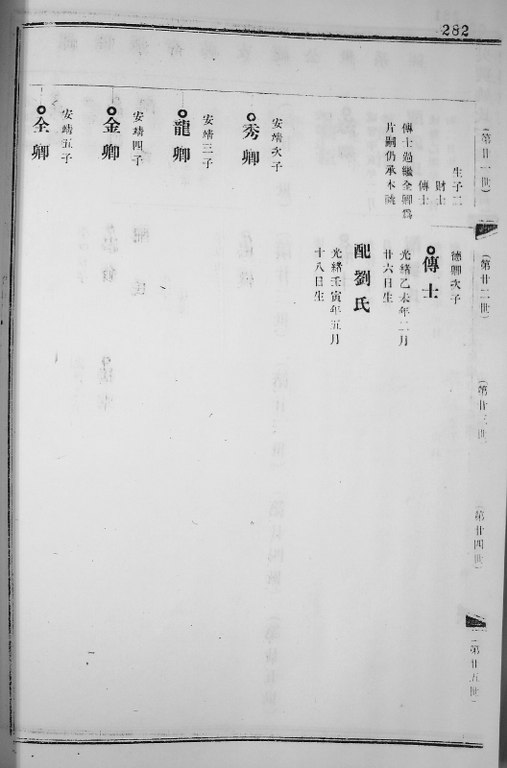 282
(第廿一世)
(第廿二世)
(第廿三世)
(第廿四世)
(第廿五世)
生子二
財士
傳士
傳士過繼全卿爲
片嗣仍承本祧
德卿次子
傳士
光緒乙未年二月
廿六日生
配劉氏
光緒壬寅年五月
十八日生
安靖次子
秀卿
安靖三子
龍卿
安靖四子
金卿
安靖五子
全卿